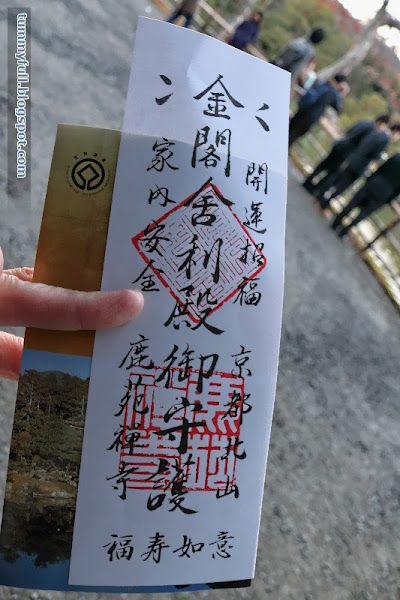 開運招福
金閣舎利殿御守護
家内安全
京都北山
鹿苑禅寺
福寿如意
tummyfull.blogspot.com